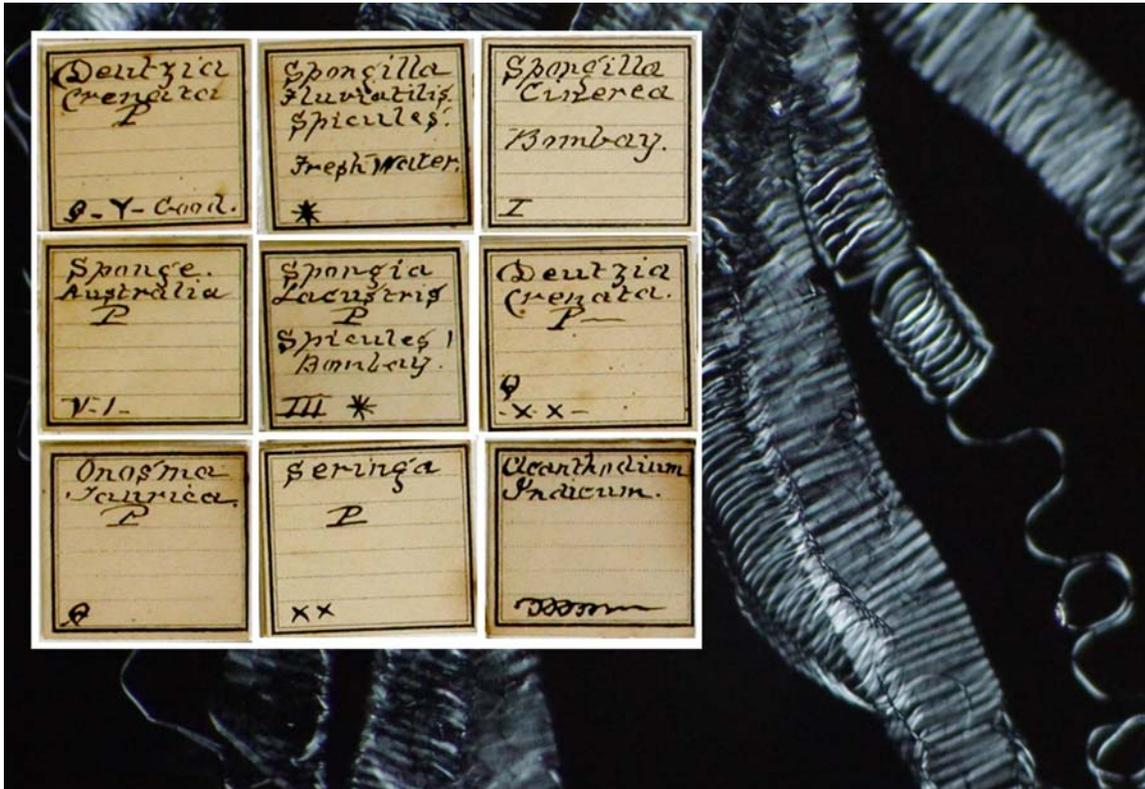 Deutzia
Crenata
P
9-Y-Good.
Spongilla
Fluviatilis.
Spicules.
Fresh Water.
Spongilla
Cinerea
Bombay.
I
Sponge.
Australia
P
V-1-
Spongia
Lacustris
P
Spicules
Bombay.
III
Deutzia
Crenata.
P—
-x x-
Onosma
Taurica.
P
Seringa
P
xx
Acanthodium
Indicum.